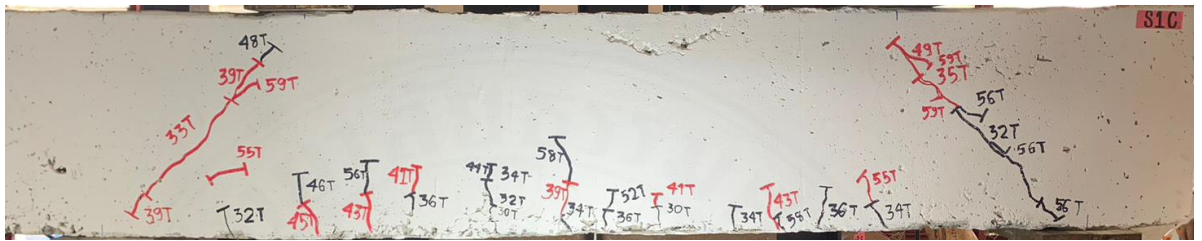 S1C
48T
39T
59T
33T
39T
55T
32T
46T
45T
56T
43T
41T
36T
44T
34T
32T
30T
58T
39T
34T
52T
36T
41T
30T
34T
43T
58T
36T
55T
34T
49T
59T
35T
59T
56T
32T
56T
56T